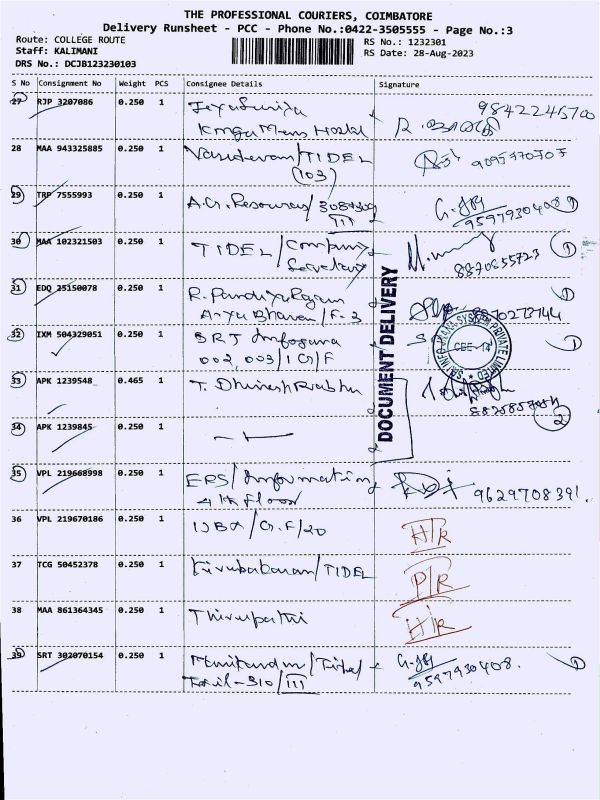 THE PROFESSIONAL COURIERS, COIMBATORE
Delivery Runsheet - PCC - Phone No.:0422-3505555 - Page No.:3
Route: COLLEGE ROUTE
RS No.: 1232301
Staff: KALIMANI
RS Date: 28-Aug-2023
DRS No.: DCJB123230103
S No Consignment No Weight PCS Consignee Details Signature
27 RJP 3207086 0.250 1 Mens Hostel 9842245700
28 MAA 943325885 0.250 1 Vasudevan/TIDEL
(103)
29 TRP 7555993 0.250 1 A.G. Resources/
III 9597930408 1
30 MAA 102321503 0.250 1 TIDEL/Company 1
Secretary 8870655723
31 EDQ 25150078 0.250 1 R. Pandiyarajan 1
Arya Bhavan/F-3 8870273744
32 IXM 504329051 0.250 1 SRT Infogana 1
002, 003/1 G/F
SRI INFOGANA SYSTEM PRIVATE LIMITED
CBE-14
33 APK 1239548 0.465 1 T. Dhinesh Prabhu
2
34 APK 1239845 0.250 1
DOCUMENT DELIVERY
35 VPL 219668998 0.250 1 EPS/Information
4th Floor 9629708391.
36 VPL 219670186 0.250 1 G.F/20 H/R
37 TCG 50452378 0.250 1 Kirubakaran/TIDEL P/R
38 MAA 861364345 0.250 1 Thirupathi H/R
39 SRT 302070154 0.250 1 Manikandan/Tidel 1
310/III 9597930408.